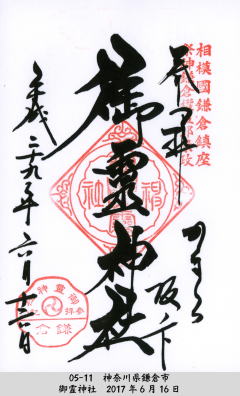 奉拝
相模國鎌倉鎮座
かまくら
坂ノ下
御霊神社
平成二十九年六月十六日
05-11　神奈川県鎌倉市
御霊神社　2017年6月16日